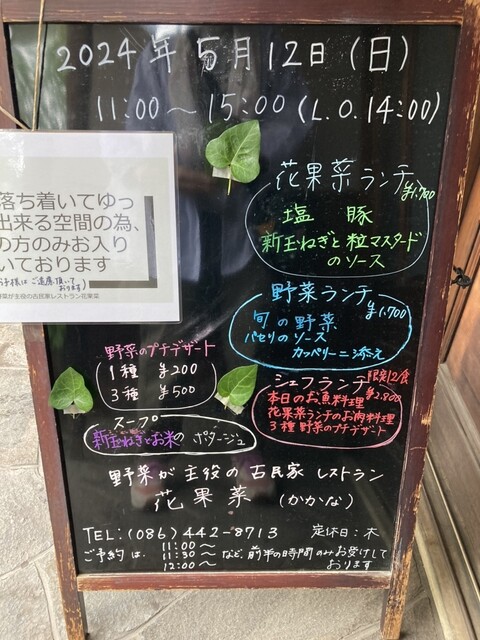 2024年5月12日(日)
11:00～15:00(L.O.14:00)
落ち着いてゆっ
出来る空間の為、
の方のみお入り
いております
お子様はご遠慮頂いて
おります)
野菜が主役の古民家レストラン花果菜
花果菜ランチ
¥1,700
塩豚
新玉ねぎと粒マスタード
のソース
野菜ランチ
¥1,700
旬の野菜
パセリのソース
カッペリーニ添え
野菜のプチデザート
1種 ¥200
3種 ¥500
シェフランチ
限定12食
¥2,800
本日のお魚料理
花果菜ランチのお肉料理
3種野菜のプチデザート
スープ
新玉ねぎとお米のポタージュ
野菜が主役の古民家レストラン
花果菜(かかな)
TEL:(086)442-8713
定休日:木
ご予約は、
11:00～
11:30
12:00～
など、前半の時間のみお受けして
おります